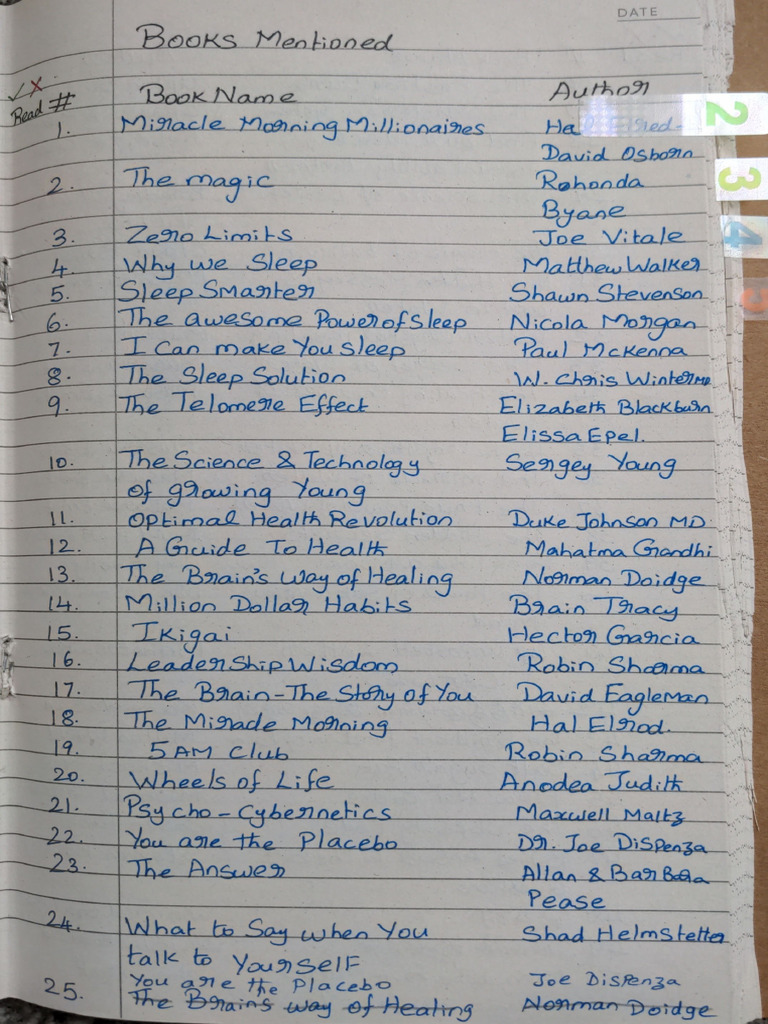 DATE
Books Mentioned
✓✗
Read # Book Name Author
1. Miracle Morning Millionaires Hal Elrod-
David Osborn
2. The magic Rohonda
Byane
3. Zero Limits Joe Vitale
4. Why we Sleep Matthew Walker
5. Sleep Smarter Shawn Stevenson
6. The awesome Power of Sleep Nicola Morgan
7. I Can make You sleep Paul McKenna
8. The Sleep Solution W. Chris Winter MD
9. The Telomere Effect Elizabeth Blackburn
Elissa Epel.
10. The Science & Technology Sergey Young
of growing Young
11. Optimal Health Revolution Duke Johnson MD
12. A Guide To Health Mahatma Gandhi
13. The Brain's Way of Healing Norman Doidge
14. Million Dollar Habits Brain Tracy
15. Ikigai Hector Garcia
16. Leadership Wisdom Robin Sharma
17. The Brain-The Story of You David Eagleman
18. The Miracle Morning Hal Elrod.
19. 5 AM Club Robin Sharma
20. Wheels of Life Anodea Judith
21. Psycho-Cybernetics Maxwell Maltz
22. You are the Placebo Dr. Joe Dispenza
23. The Answer Allan & Barbara
Pease
24. What to Say when You Shad Helmstetter
talk to Yourself
25. You are the Placebo Joe Dispenza
The Brain's way of Healing Norman Doidge
2
3
4
5